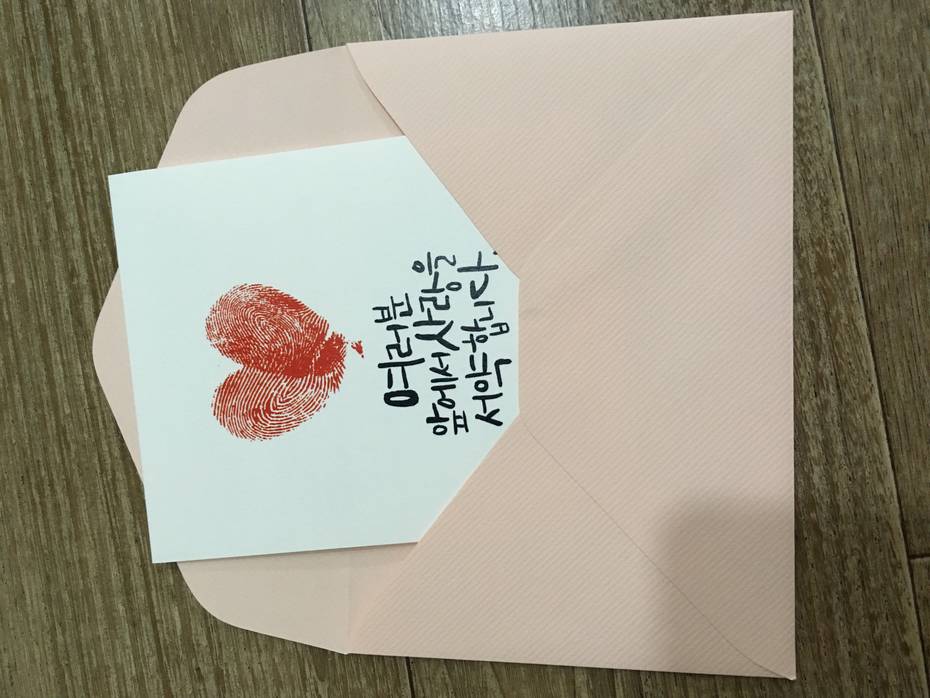 여러분
앞에서 사랑을
서약합니다.